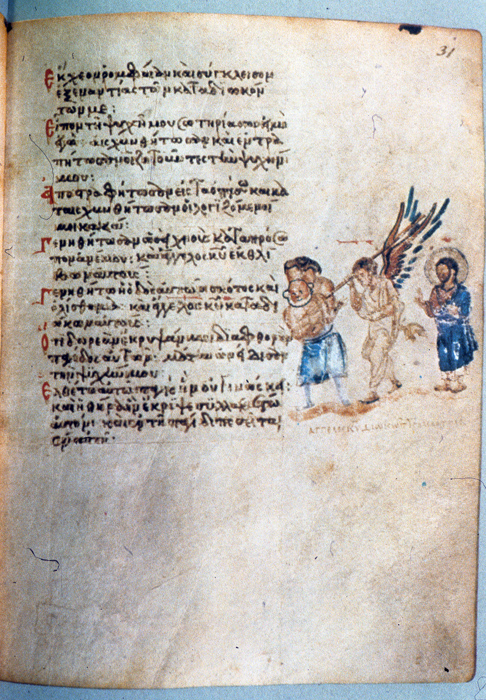 31
Ἔκχεον ῥομφαίαν καὶ σύγκλεισον
ἐξ ἐναντίας τῶν καταδιωκόν
των με:
Εἶπον τῇ ψυχῇ μου σωτηρία σου
αἰσχυνθήτωσαν καὶ ἐντρα
πήτωσαν οἱ ζητοῦντες τὴν ψυχήν
μου:
Ἀποστραφήτωσαν εἰς τὰ ὀπίσω καὶ κα
ταισχυνθήτωσαν οἱ λογιζόμενοί
μοι κακά:
Γενηθήτωσαν ὡσεὶ χνοῦς κατὰ πρόσω
πον ἀνέμου: καὶ ἄγγελος κυ ἐκθλί
βων αὐτούς:
Γενηθήτω ἡ ὁδὸς αὐτῶν σκότος καὶ
ὀλίσθημα: καὶ ἄγγελος κυ καταδι
ώκων αὐτούς:
Ὅτι δωρεὰν ἔκρυψάν μοι διαφθορὰν
παγίδος αὐτῶν: μάτην ὠνείδισαν
τὴν ψυχήν μου:
Ἐλθέτω αὐτῷ παγὶς ἣν οὐ γινώσκει:
καὶ ἡ θήρα ἣν ἔκρυψε συλλαβέτω
αὐτόν: καὶ ἐν τῇ παγίδι πεσεῖται
ἐν αὐτῇ: